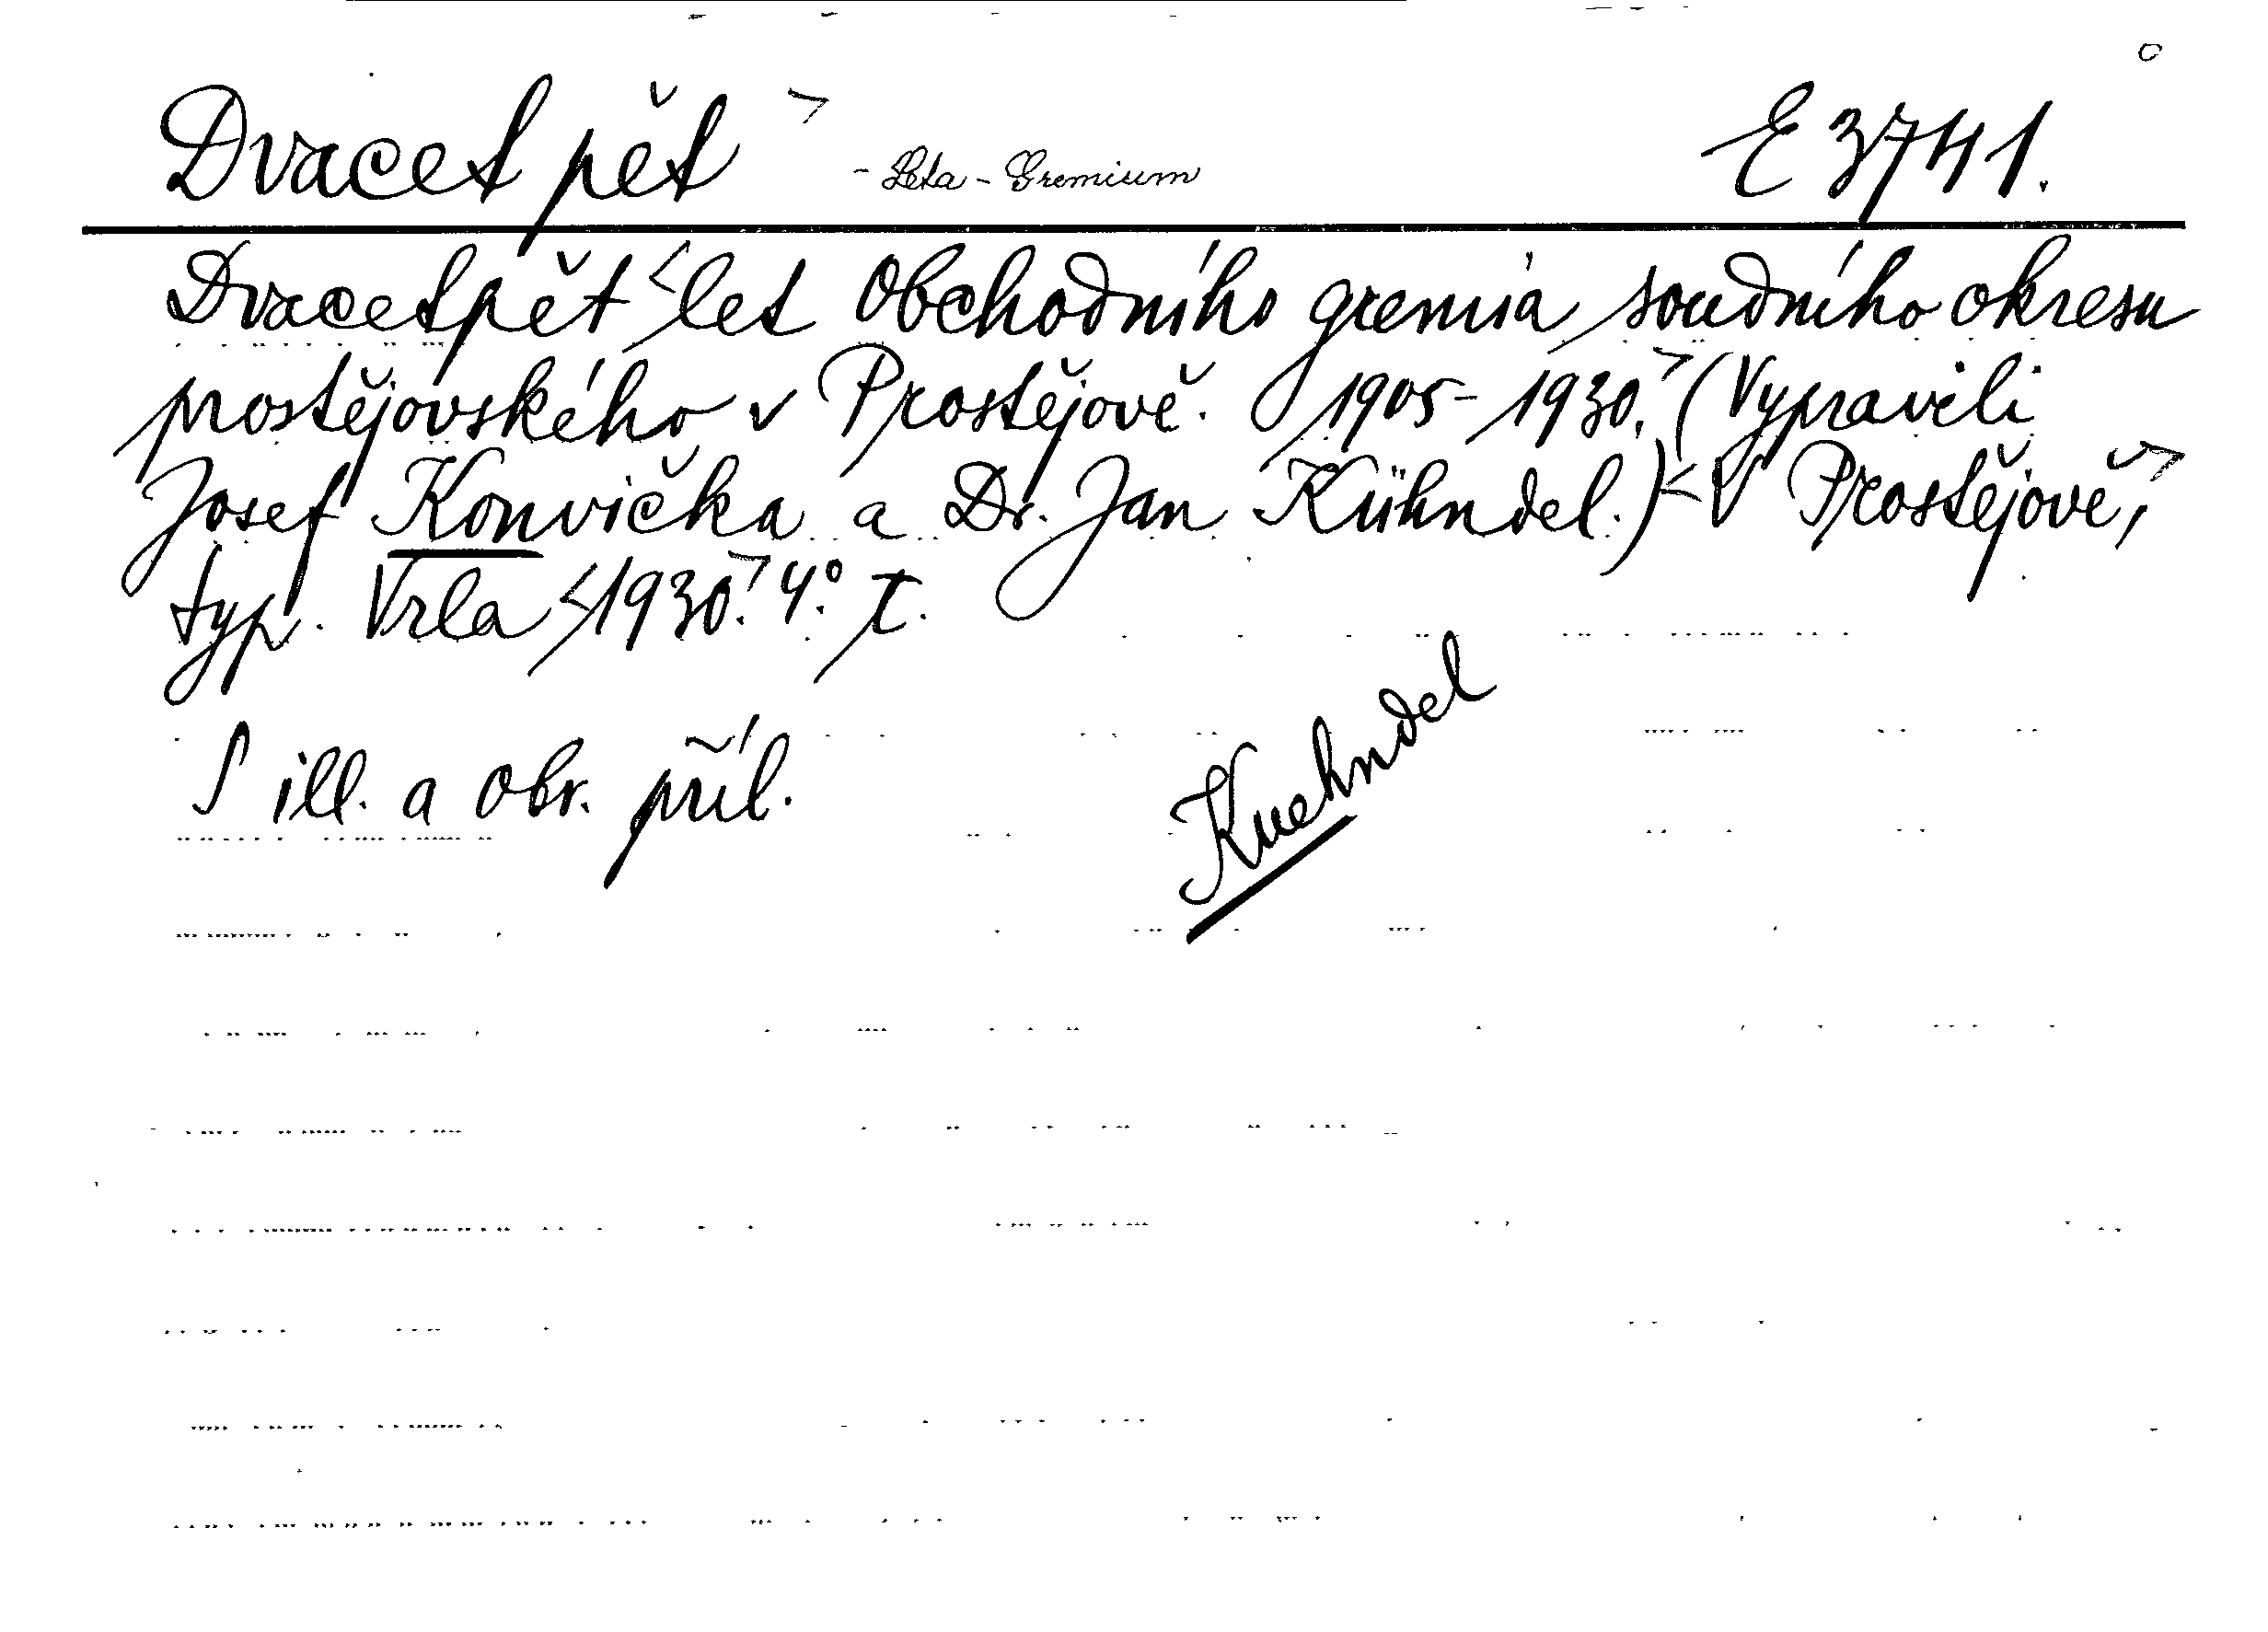 Dvacet pět > - Leta - Gremium E 3741.
Dvacetpět < let Obchodního gremia soudního okresu
prostějovského v Prostějově. 1905-1930. > (Vypravili
Josef Konvička a Dr. Jan Kühndel.) < V Prostějově, >
typ. Vrla < 1930. > 4° I.
S ill. a obr. příl.
Kuehndel